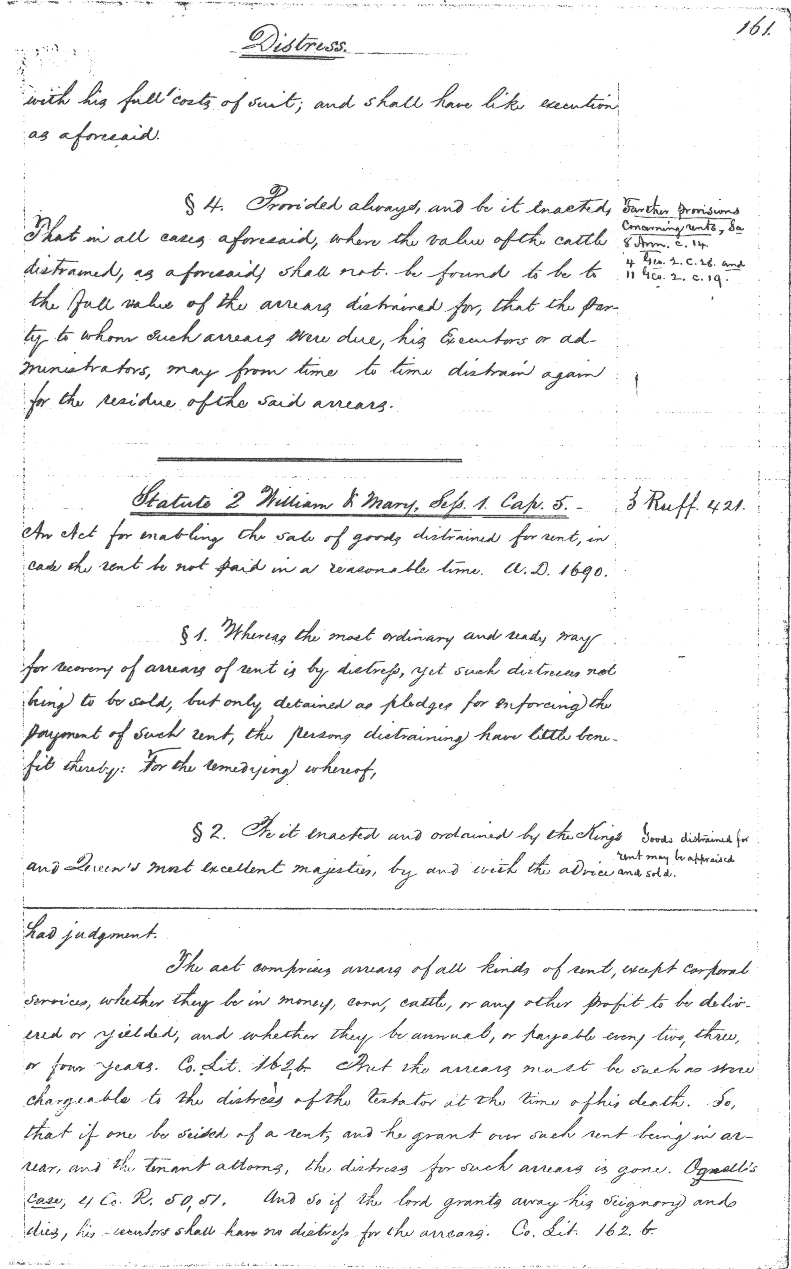 161.
Distress.
with his full costs of suit; and shall have like execution
as aforesaid.
§ 4. Provided always, and be it enacted,
That in all cases aforesaid, where the value of the cattle
distrained, as aforesaid, shall not be found to be to
the full value of the arrears distrained for, that the par-
ty to whom such arrears were due, his Executors or ad-
ministrators, may from time to time distrain again
for the residue of the said arrears.
Farther provisions
Concerning rents, Se
8 Ann. c. 14.
4 Geo. 2. c. 28. and
11 Geo. 2. c. 19.
Statute 2 William & Mary, Sess. 1. Cap. 5. -
3 Ruff. 421.
An Act for enabling the sale of goods distrained for rent, in
case the rent be not paid in a reasonable time. A.D. 1690.
§ 1. Whereas the most ordinary and ready way
for recovery of arrears of rent is by distress, yet such distresses not
being to be sold, but only detained as pledges for enforcing the
payment of such rent, the persons distraining have little bene-
fit thereby: For the remedying whereof,
§ 2. Be it enacted and ordained by the King's
and Queen's most excellent majesties, by and with the advice
Goods distrained for
rent may be appraised
and sold.
had judgment.
The act comprises arrears of all kinds of rent, except corporal
services, whether they be in money, corn, cattle, or any other profit to be deliv-
ered or yielded, and whether they be annual, or payable every two, three,
or four years. Co. Lit. 162 b. But the arrears must be such as were
chargeable to the distress of the testator at the time of his death. So,
that if one be seised of a rent, and he grant over such rent being in ar-
rear, and the tenant attorns, the distress for such arrears is gone. Ognell's
case, 4 Co. R. 50, 51. And so if the lord grants away his Seignory and
dies, his -ecutors shall have no distress for the arrears. Co. Lit. 162. b.